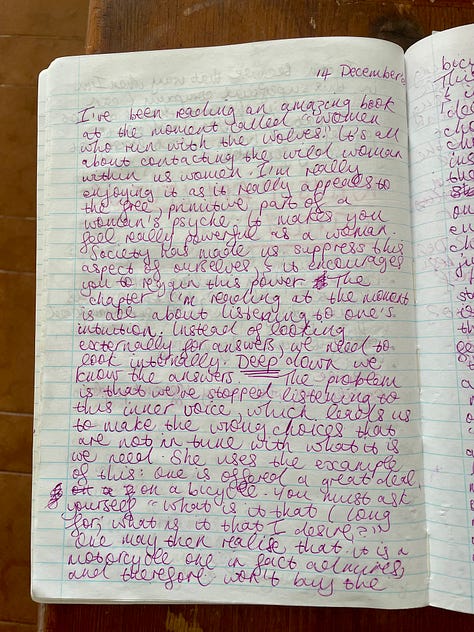 14 December
I've been reading an amazing book
at the moment called "women
who run with the wolves." It's all
about contacting the wild woman
within us women. I'm really
enjoying it as it really appeals to
the free primitive part of a
woman's psyche. It makes you
feel really powerful as a woman.
Society has made us suppress this
aspect of ourselves & it encourages
you to regain this power. The
chapter I'm reading at the moment
is all about listening to one's
intuition. Instead of looking
externally for answers, we need to
look internally. Deep down we
know the answers. The problem
is that we've stopped listening to
this inner voice, which leads us
to make the wrong choices that
are not in tune with what it is
we need. She uses the example
of this: one is offered a great deal
on a bicycle. You must ask
yourself "what is it that I long
for, what is it that I desire?"
One may then realise that it is a
motorcycle one in fact admires
and therefore won't buy the